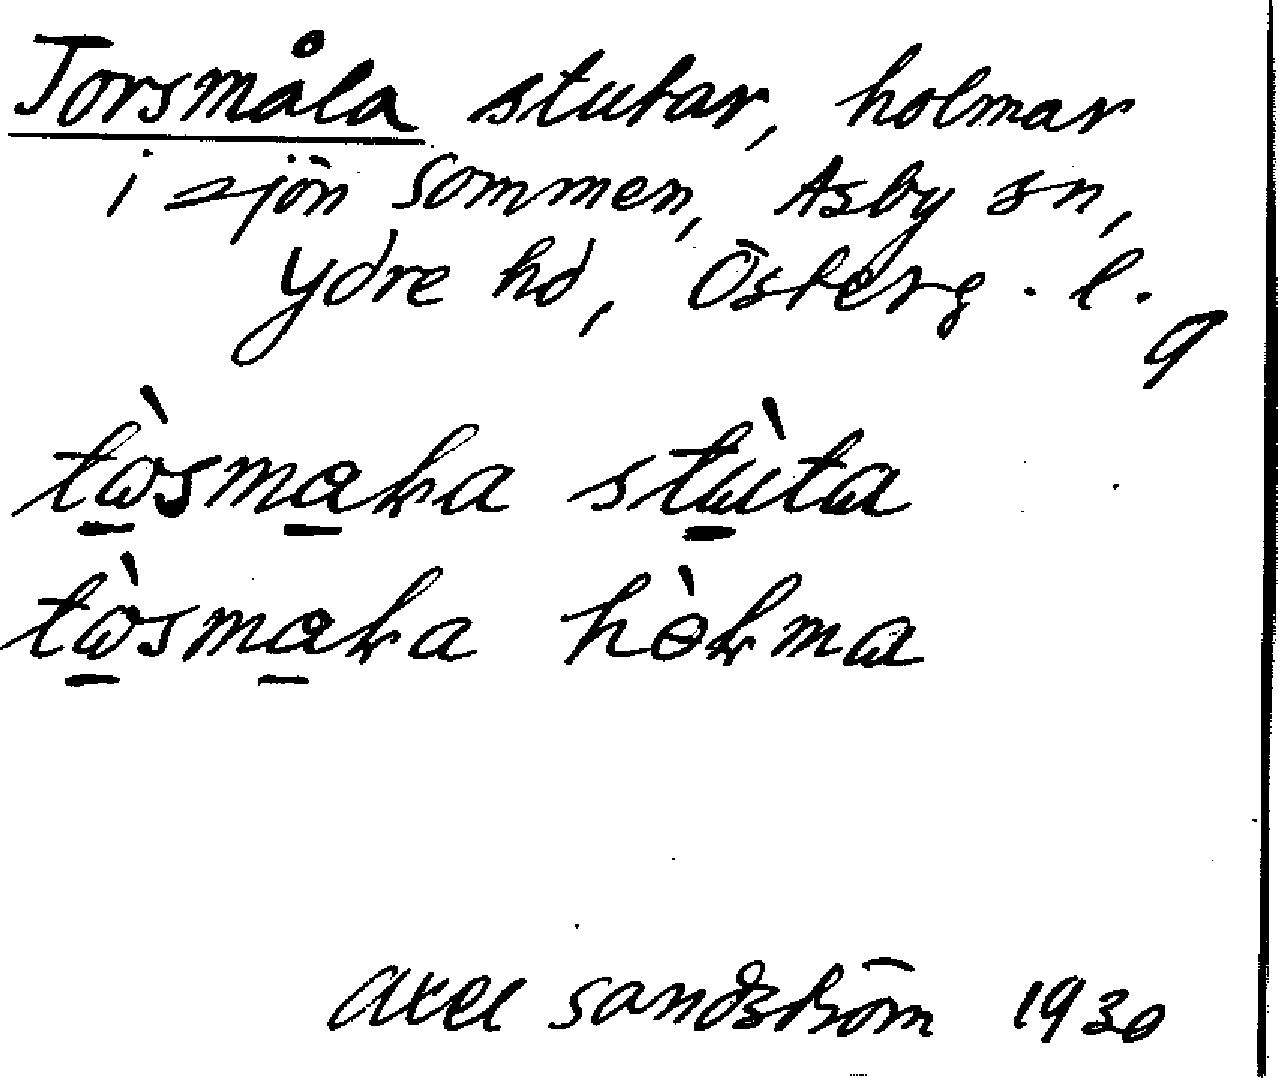 Torsmåla stutar, holmar
i sjön Sommen, Asby sn,
Ydre hd, Österg. l.
tòsmaka stùta
tòsmaka hòkma
Axel Sandström 1930